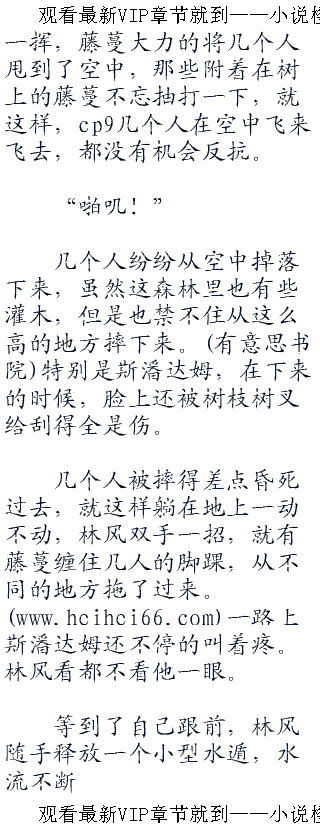 观看最新VIP章节就到——小说
一挥，藤蔓大力的将几个人
甩到了空中，那些附着在树
上的藤蔓不忘抽打一下，就
这样，cp9几个人在空中飞来
飞去，都没有机会反抗。
“啪叽！”
几个人纷纷从空中掉落
下来，虽然这森林里也有些
灌木，但是也禁不住从这么
高的地方摔下来。(有意思书
院)特别是斯潘达姆，在下来
的时候，脸上还被树枝树叉
给刮得全是伤。
几个人被摔得差点昏死
过去，就这样躺在地上一动
不动，林风双手一招，就有
藤蔓缠住几人的脚踝，从不
同的地方拖了过来。
(www.hcihci66.com)一路上
斯潘达姆还不停的叫着疼。
林风看都不看他一眼。
等到了自己跟前，林风
随手释放一个小型水遁，水
流不断
观看最新VIP章节就到——小说